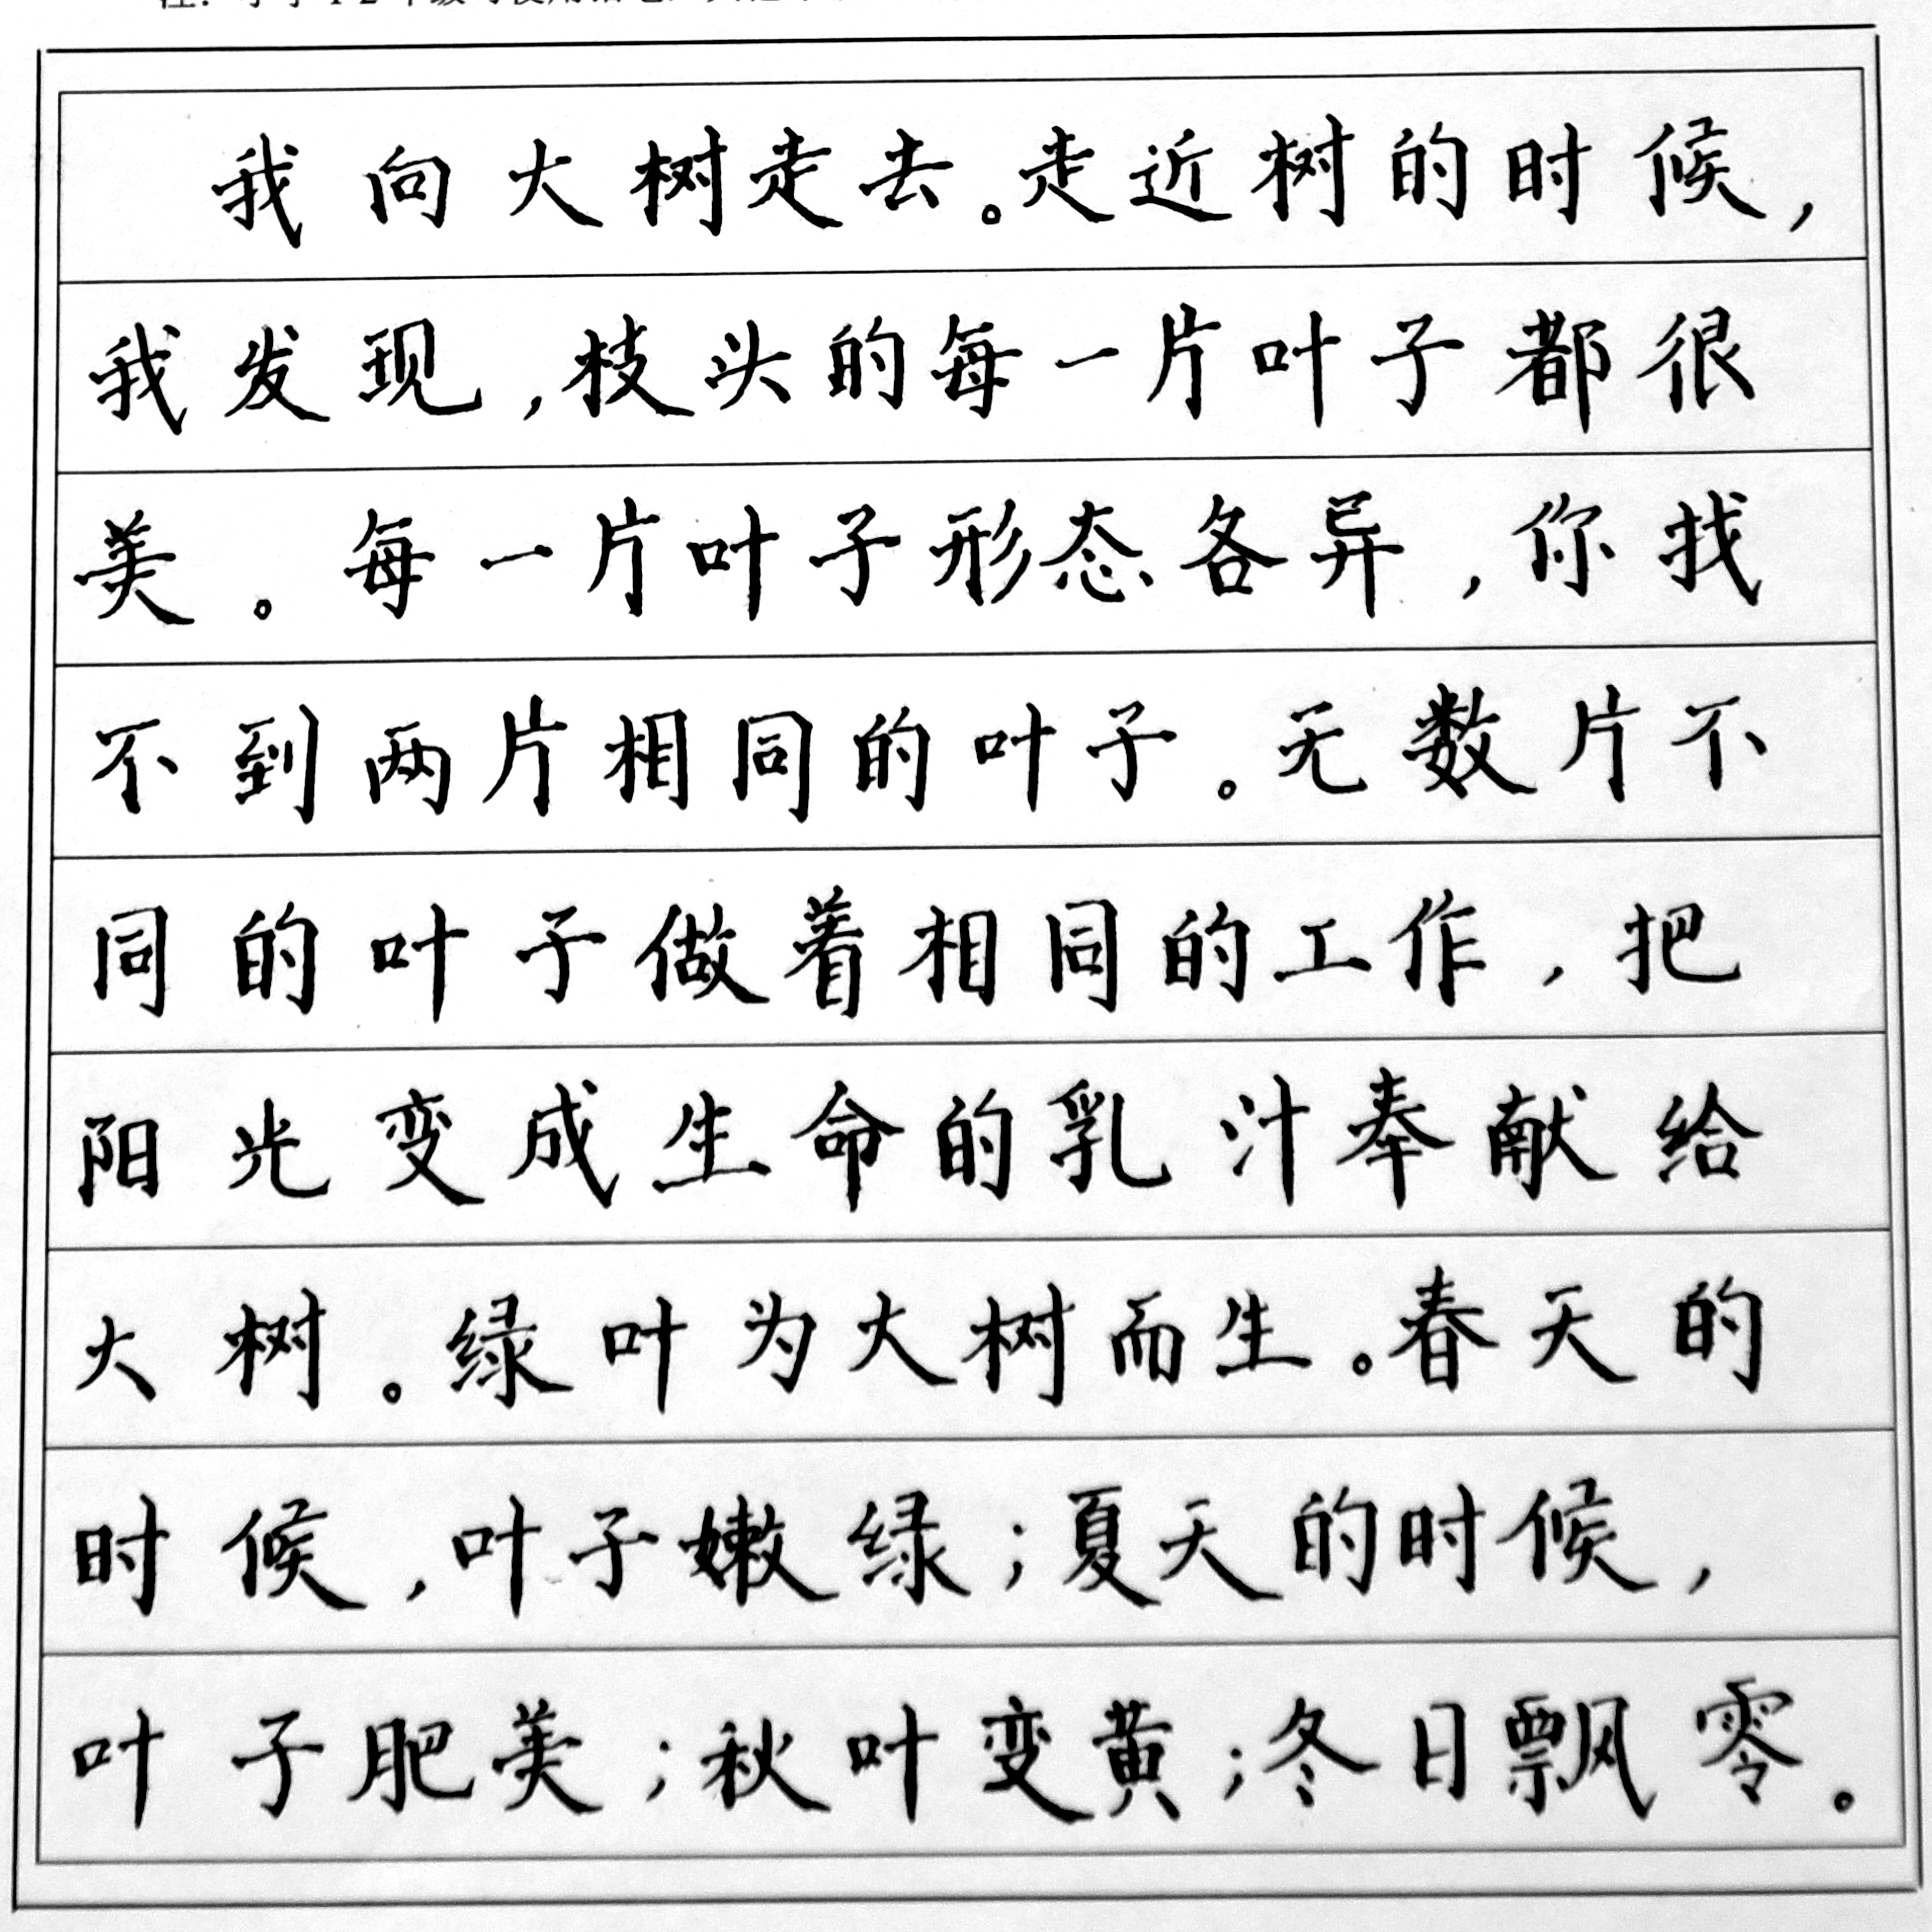 我向大树走去。走近树的时候，
我发现，枝头的每一片叶子都很
美。每一片叶子形态各异，你找
不到两片相同的叶子。无数片不
同的叶子做着相同的工作，把
阳光变成生命的乳汁奉献给
大树。绿叶为大树而生。春天的
时候，叶子嫩绿；夏天的时候，
叶子肥美；秋叶变黄；冬日飘零。